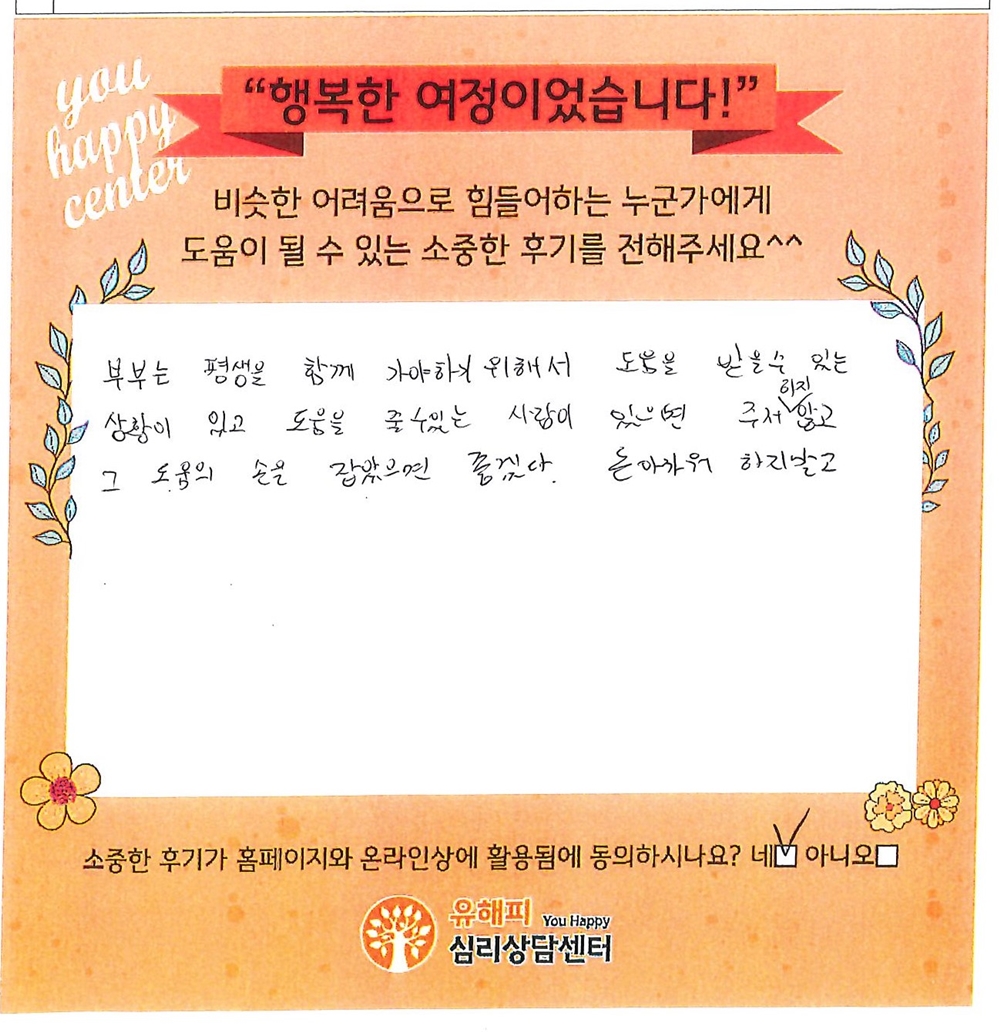 you
happy
center
“행복한 여정이었습니다!”
비슷한 어려움으로 힘들어하는 누군가에게
도움이 될 수 있는 소중한 후기를 전해주세요^^
부부는 평생을 함께 가야하기 위해서 도움을 받을수 있는
상황이 있고 도움을 줄수있는 사람이 있으면 주저하지 않고
그 도움의 손을 잡았으면 좋겠다. 돈아까워 하지말고
소중한 후기가 홈페이지와 온라인상에 활용됨에 동의하시나요? 네 아니오
유해피 You Happy
심리상담센터